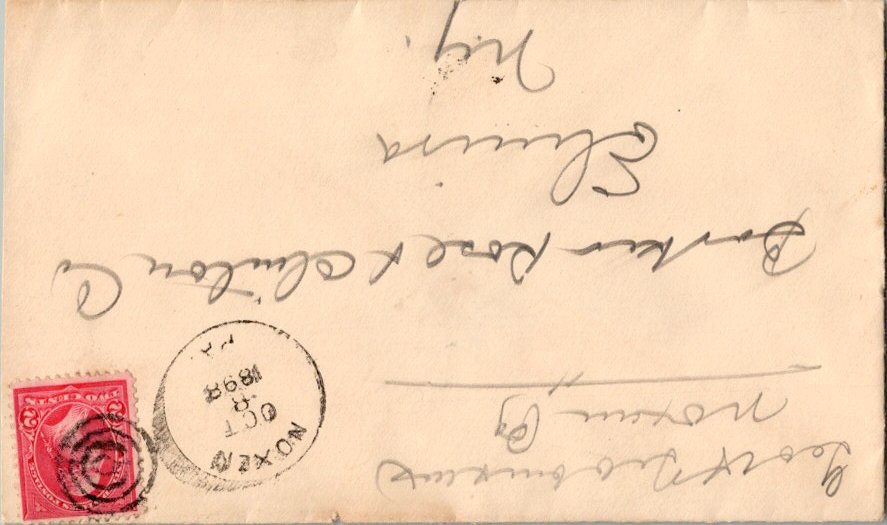 Noxen Pa
Barker Rose & Clinton Co
Elmira
N.Y.
NOXEN
OCT
8
1898
PA
U.S. POSTAGE
2 2
TWO CENTS